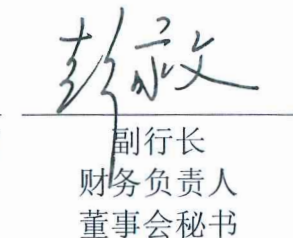 彭敬文
副行长
财务负责人
董事会秘书